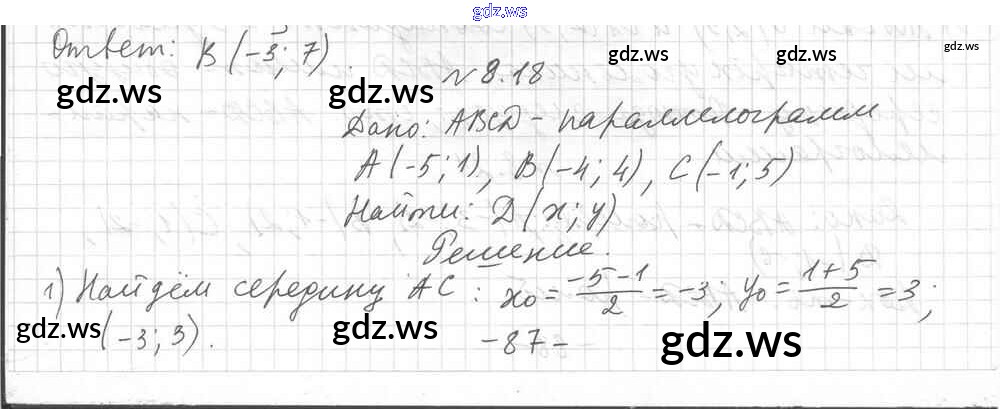 gdz.ws
Ответ: B (-3; 7).
gdz.ws gdz.ws
gdz.ws gdz.ws
№ 8.18
Дано: ABCD - параллелограмм
A(-5; 1), B(-4; 4), C(-1; 5)
Найти: D(x; y)
Решение.
1) Найдём середину AC: x₀ = (-5-1)/2 = -3; y₀ = (1+5)/2 = 3;
(-3; 3).
gdz.ws gdz.ws gdz.ws
-87-